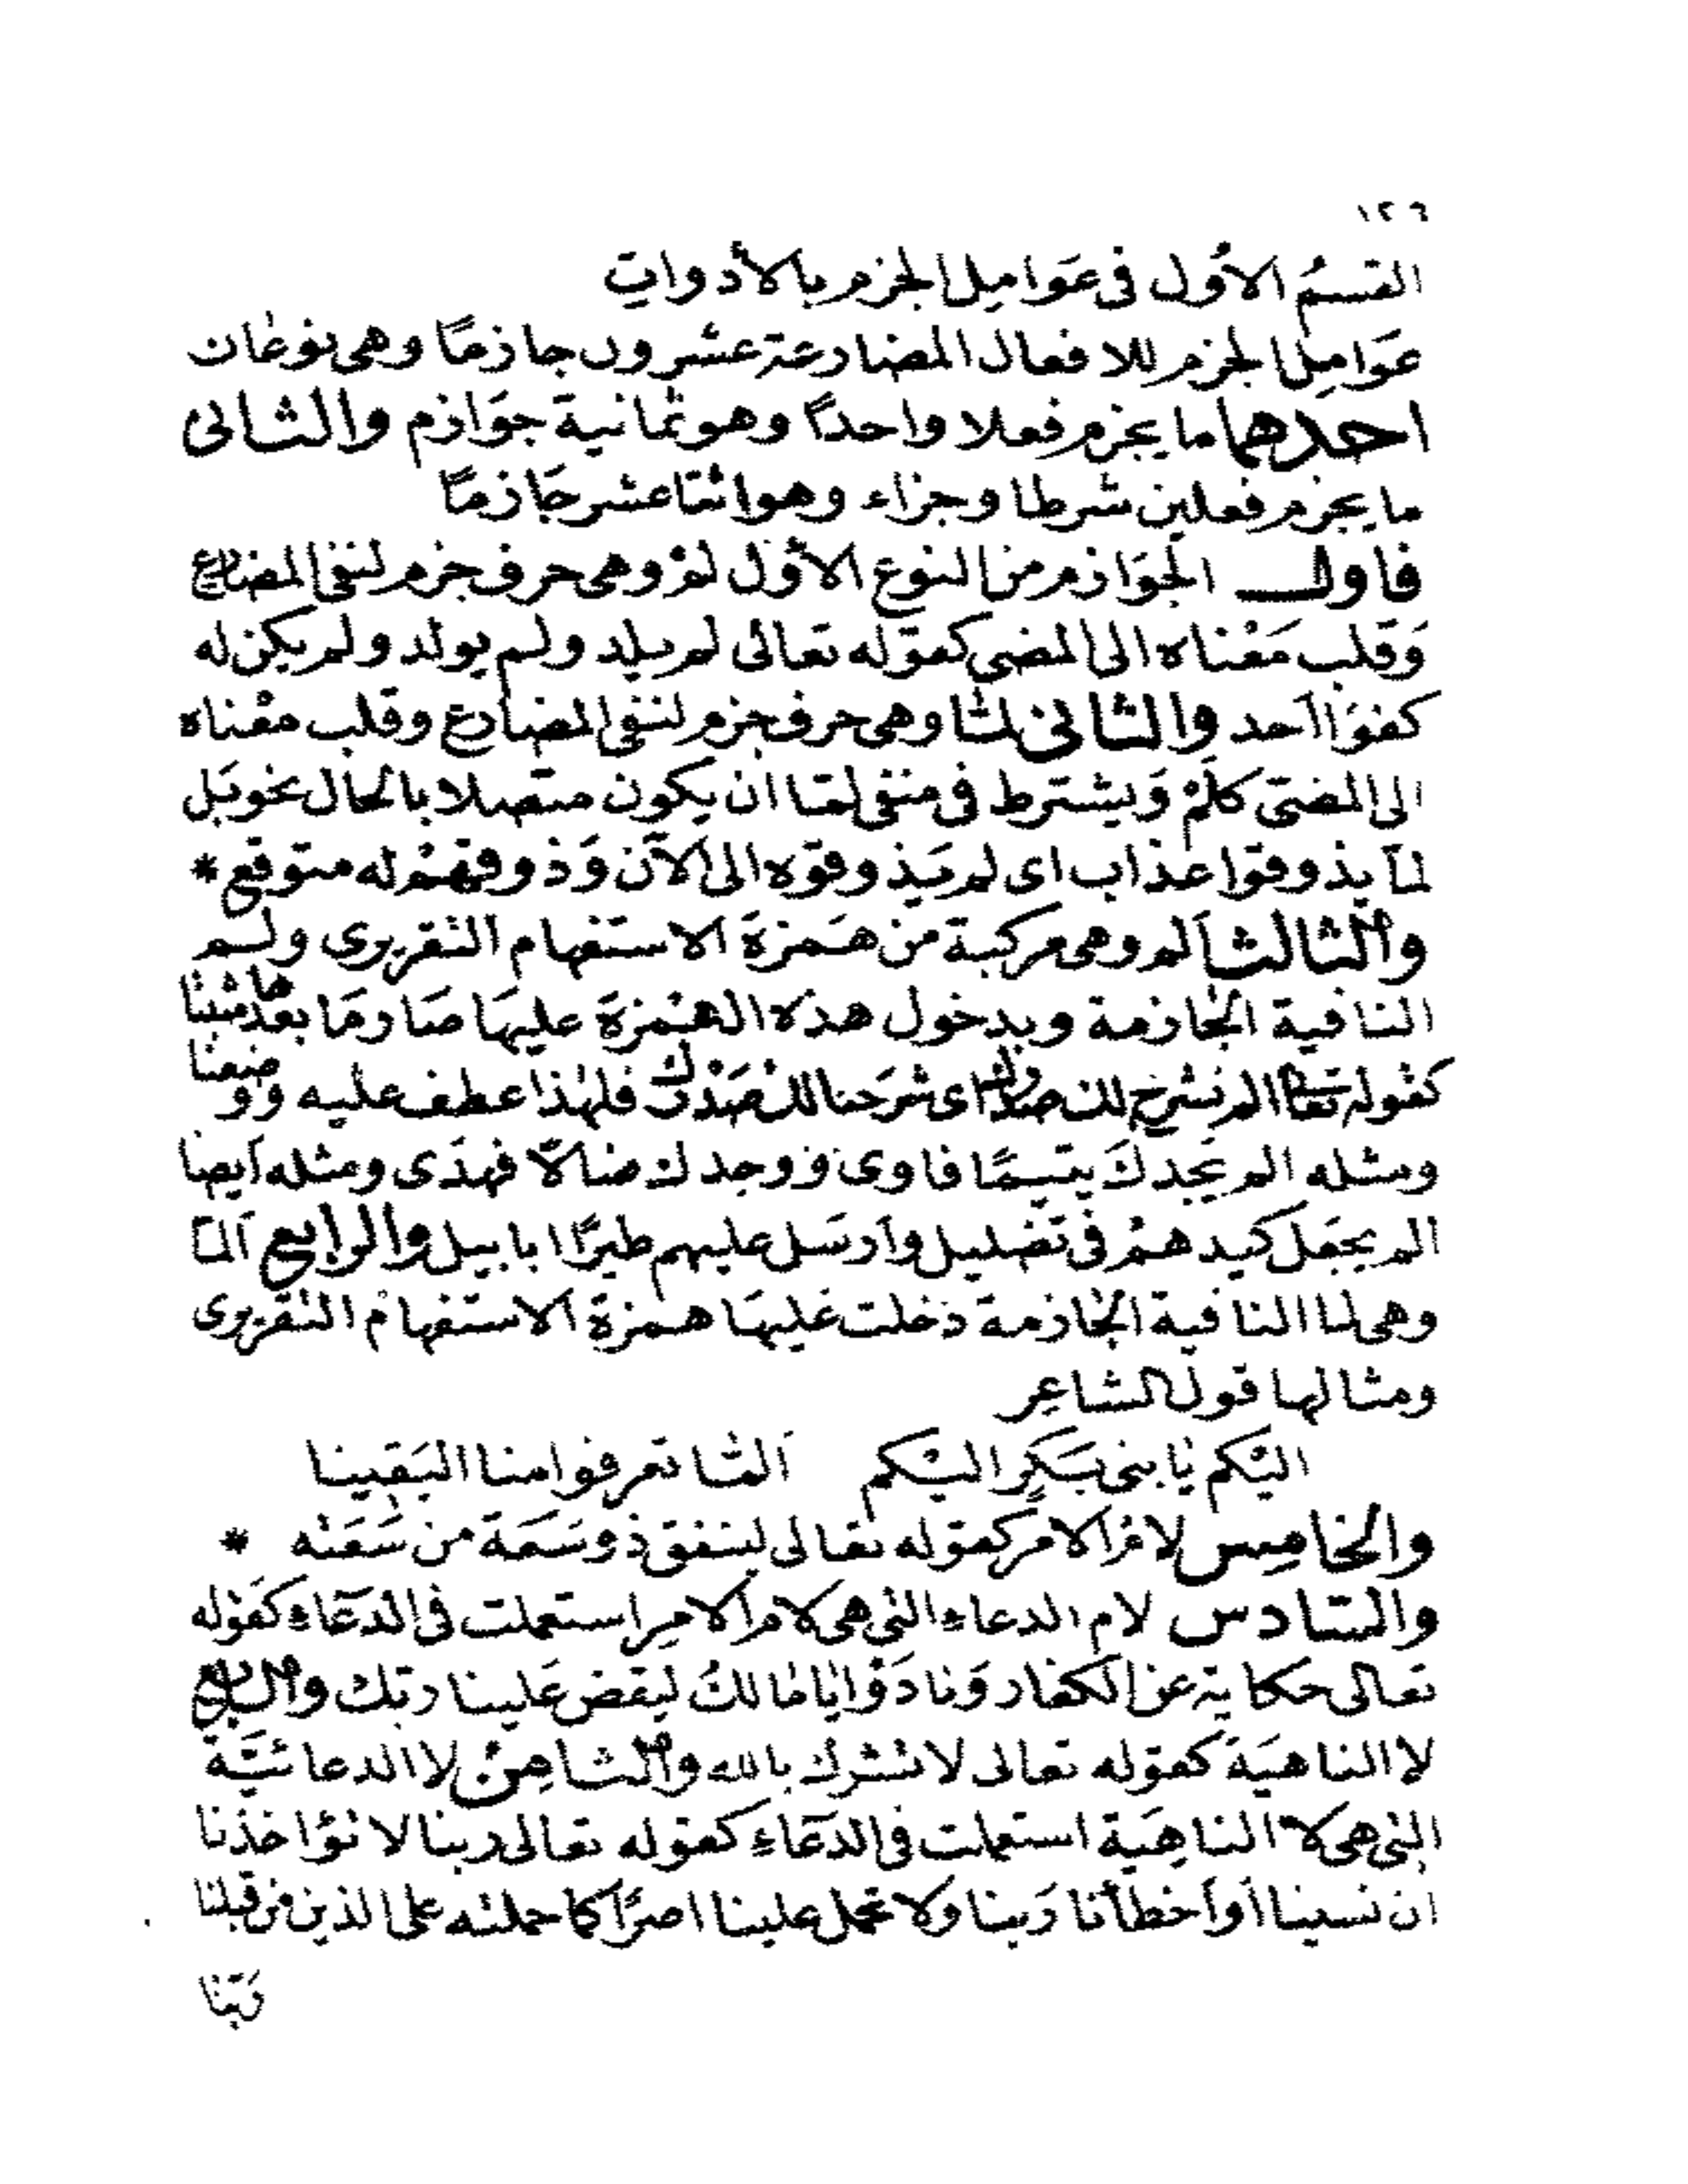 ١٢٦
القسمُ الاوُل فى عَوَاملِ الجزم بالأدواتِ
عَوَامِل الجزم للافعال المضارعة عشرون جازمًا وهى نوعان
احدهما ما يجزم فعلا واحدًا وهو ثمانية جوَازم والثانى
ما يجزم فعلين شرطا وجزاء وهو اثنتا عشر جَازمًا
فاول الجوَازم من النوع الأوّل لمْ وهى حرف جزم لنفى المضارع
وَقلب مَعْناه الى المضى كقوله تعالى لم يلد ولم يولد ولم يكن له
كفوَا أحد والثانى لمّا وهى حرف جزم لنفى المضارع وقلب معْناه
الى المضىّ كلَمْ وَيشترط فى منفى لمّا ان يكون متصلا بالحال نحو بَل
لمّا يذوقوا عذاب اى لم يَذوقوه الى الآن وَذوقهمْ له متوقع *
والثالث ألم وهى مركبة من هَمزة الاستفهام التقريرى ولم
النافية الجازمة وبدخول هذه الهمْزة عليهَا صَار مَا بعدها مثبتا
كقوله تعالى الم نشرح لك صدرك اى شرَحنا لك صَدْرك فلهذا عطف عليه ووضعنا
ومثله الم يَجدكَ يتيمًا فاوى ووجدك ضالّا فهدَى ومثله أيضا
الم يجعَل كيدهمْ فى تضليل وأرسَل عليهم طيرًا ابابيل والرابع ألمّا
وهى لما النافية الجازمة دخلت عَليهَا همزة الاستفهام التقريرى
ومثالها قول الشاعِر
اليْكم يَا بنى بَكرٍ اليْكم ألمّا تعرفوا منا اليَقينا
والخامِس لامُ الامْر كقوله تعالى لينفق ذو سَعَة من سَعَته *
والسّادس لام الدعاءِ التى هى لام الامرِ استعملت فى الدعَاءِ كقوله
تعالى حكاية عن الكفار وَنادَوْا يَا مَالكُ ليقض عَلينا ربّك والسابع
لا الناهيَة كقوله تعالى لا تشرك بالله والثامِنُ لا الدعائيَّة
التى هى لا الناهِيَة استعملت فى الدعَاءِ كقوله تعالى ربنا لا تؤاخذنا
ان نسينا أو أخطأنا رَبنا ولا تحمل علينا اصرًا كما حملته على الذين من قبلنا
رَبّنا